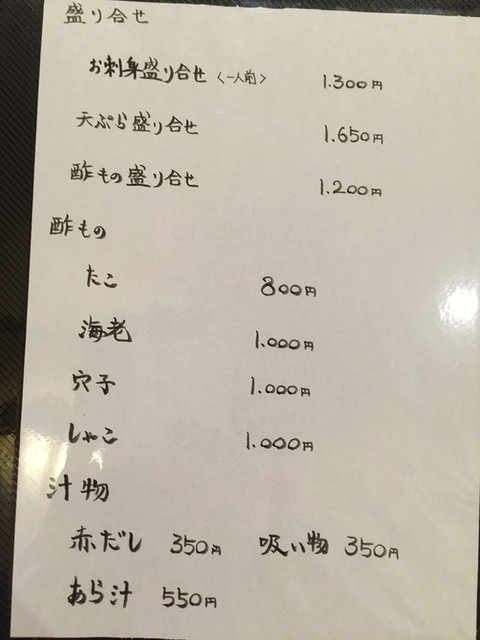 盛り合せ
お刺身盛り合せ〈一人前〉 1.300円
天ぷら盛り合せ 1.650円
酢もの盛り合せ 1.200円
酢もの
たこ 800円
海老 1.000円
穴子 1.000円
しゃこ 1.000円
汁物
赤だし 350円 吸い物 350円
あら汁 550円